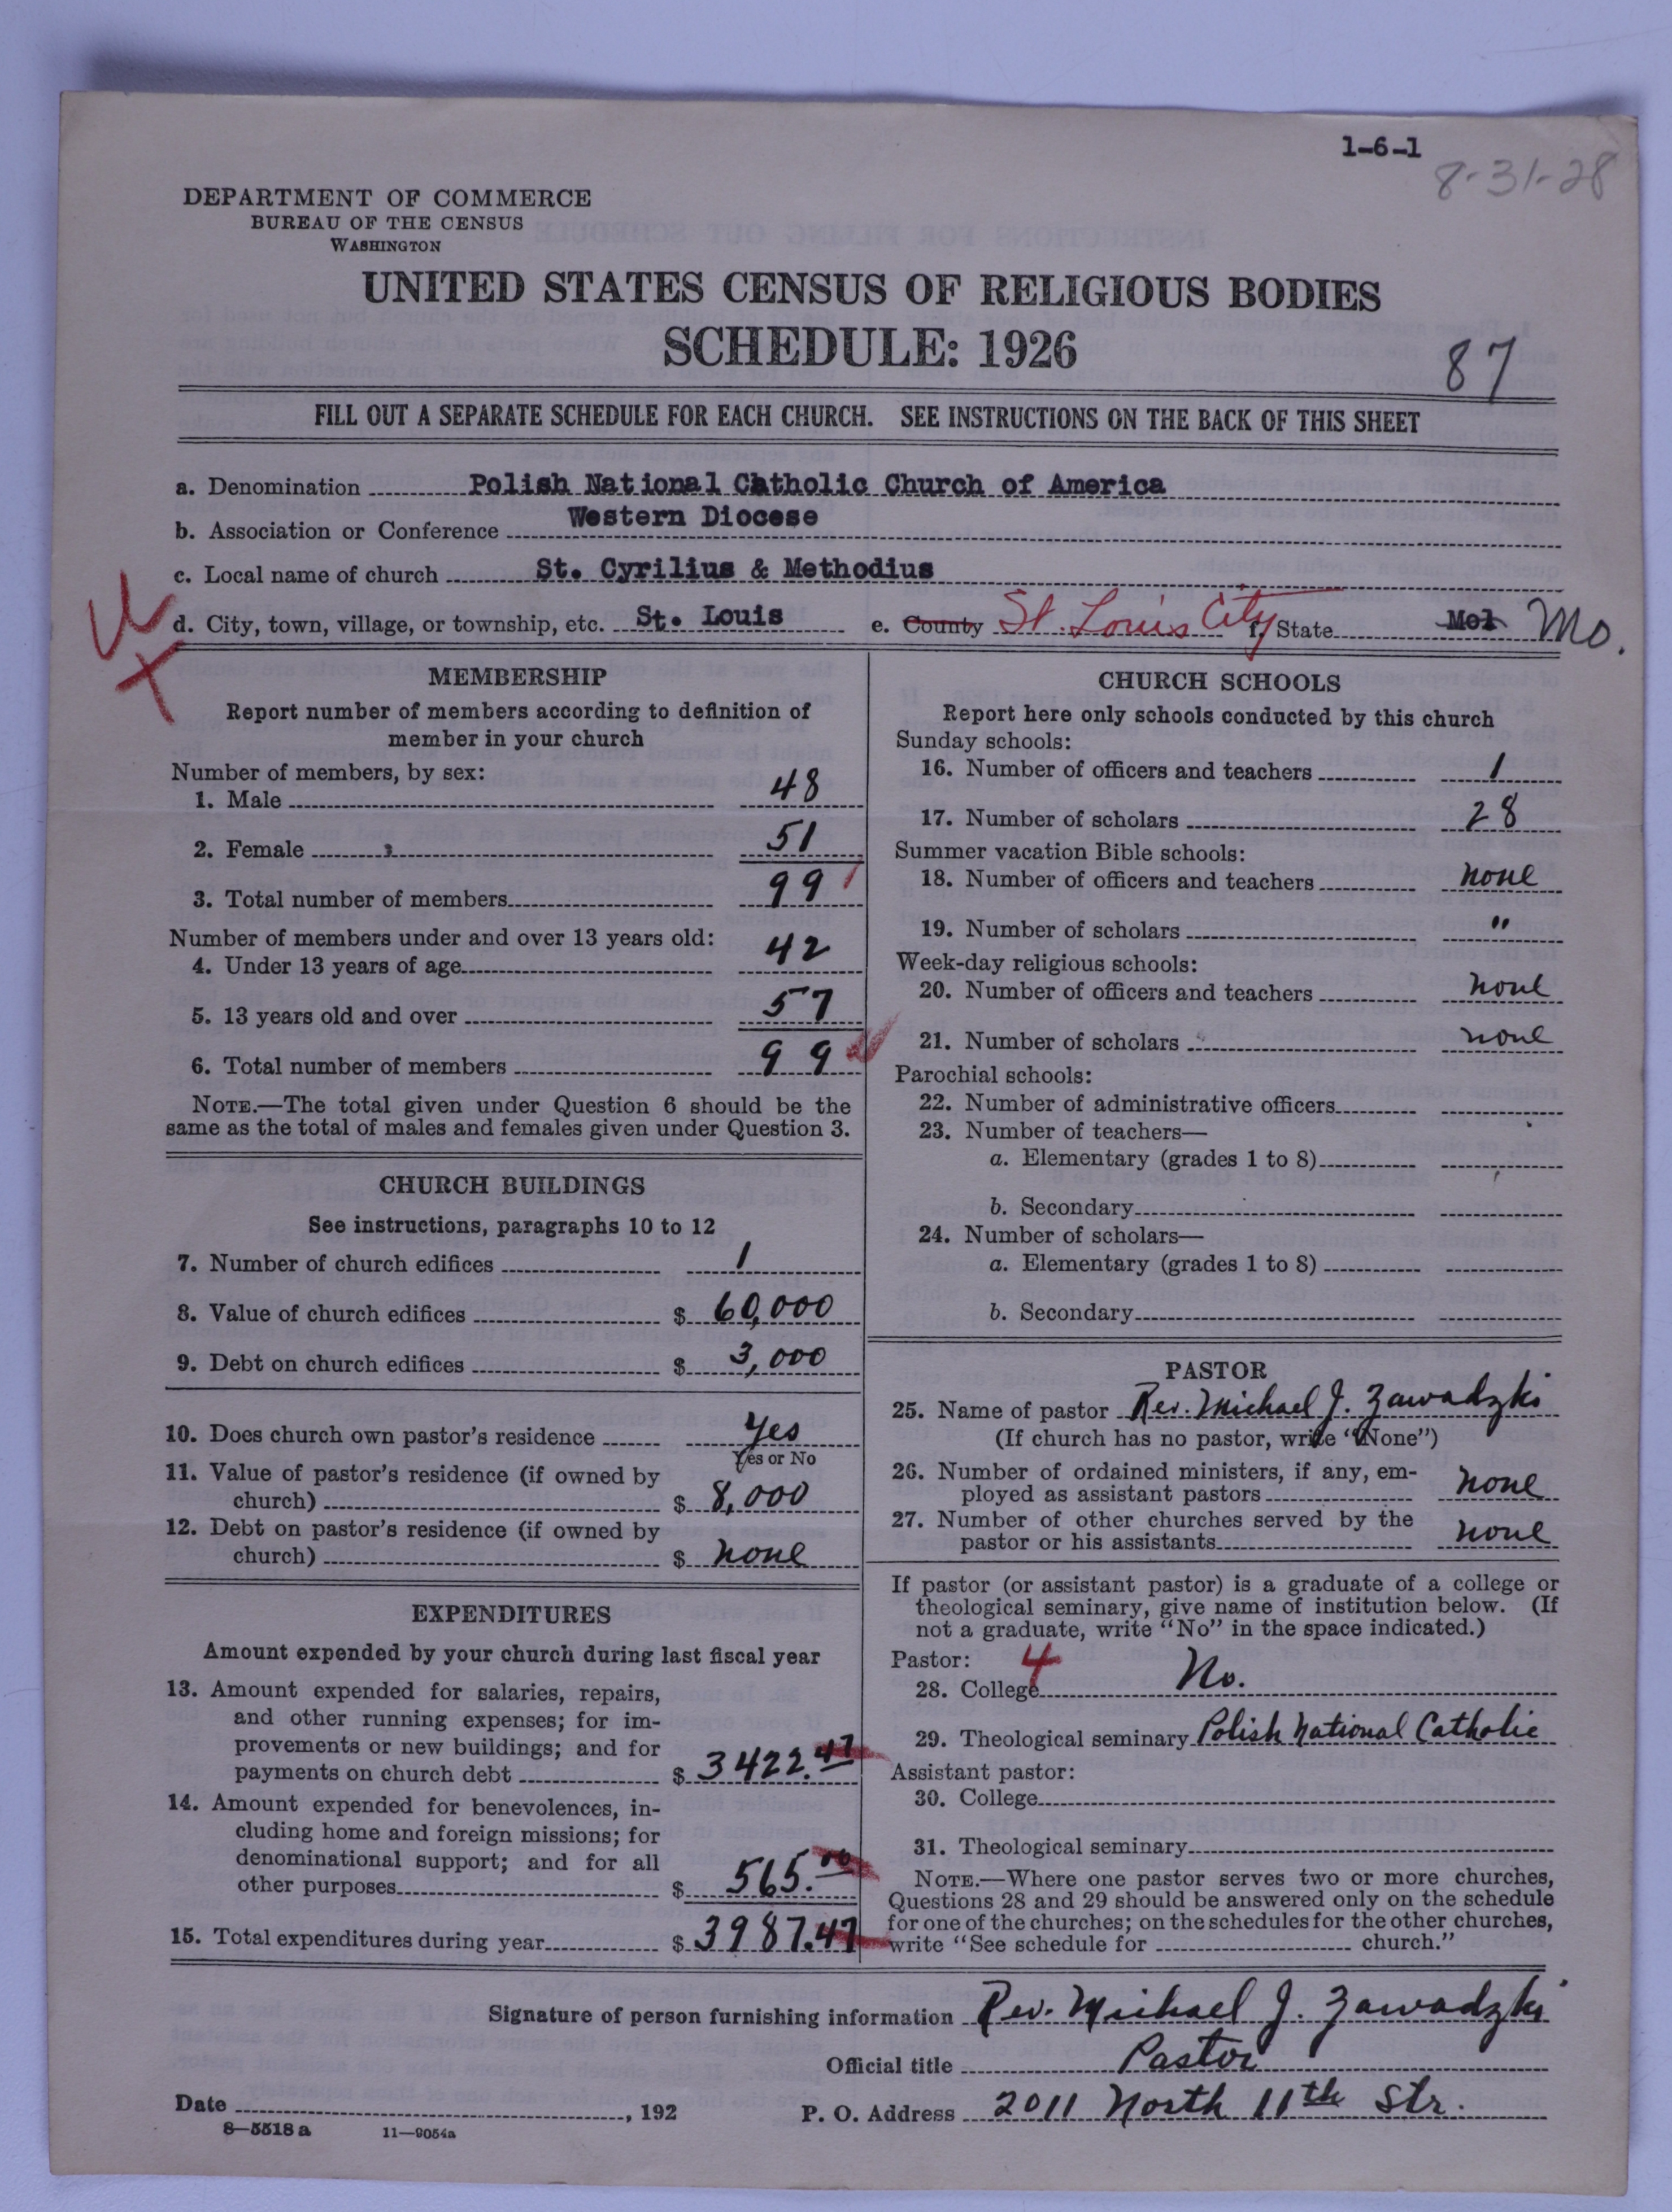 1-6-1
8-31-28
DEPARTMENT OF COMMERCE
BUREAU OF THE CENSUS
WASHINGTON
UNITED STATES CENSUS OF RELIGIOUS BODIES
SCHEDULE: 1926
87
FILL OUT A SEPARATE SCHEDULE FOR EACH CHURCH. SEE INSTRUCTIONS ON THE BACK OF THIS SHEET
a. Denomination Polish National Catholic Church of America
b. Association or Conference Western Diocese
c. Local name of church St. Cyrilius & Methodius
d. City, town, village, or township, etc. St. Louis e. County St. Louis City f. State Mol Mo.
MEMBERSHIP
Report number of members according to definition of
member in your church
Number of members, by sex:
1. Male 48
2. Female 51
3. Total number of members 99
Number of members under and over 13 years old:
4. Under 13 years of age 42
5. 13 years old and over 57
6. Total number of members 99
NOTE.—The total given under Question 6 should be the
same as the total of males and females given under Question 3.
CHURCH BUILDINGS
See instructions, paragraphs 10 to 12
7. Number of church edifices 1
8. Value of church edifices $ 60,000
9. Debt on church edifices $ 3,000
10. Does church own pastor's residence Yes
Yes or No
11. Value of pastor's residence (if owned by
church) $ 8,000
12. Debt on pastor's residence (if owned by
church) $ none
EXPENDITURES
Amount expended by your church during last fiscal year
13. Amount expended for salaries, repairs,
and other running expenses; for im-
provements or new buildings; and for
payments on church debt $ 3422.47
14. Amount expended for benevolences, in-
cluding home and foreign missions; for
denominational support; and for all
other purposes $ 565.00
15. Total expenditures during year $ 3987.47
CHURCH SCHOOLS
Report here only schools conducted by this church
Sunday schools:
16. Number of officers and teachers 1
17. Number of scholars 28
Summer vacation Bible schools:
18. Number of officers and teachers none
19. Number of scholars "
Week-day religious schools:
20. Number of officers and teachers none
21. Number of scholars none
Parochial schools:
22. Number of administrative officers
23. Number of teachers—
a. Elementary (grades 1 to 8)
b. Secondary
24. Number of scholars—
a. Elementary (grades 1 to 8)
b. Secondary
PASTOR
25. Name of pastor Rev. Michael J. Zawadzki
(If church has no pastor, write "None")
26. Number of ordained ministers, if any, em-
ployed as assistant pastors none
27. Number of other churches served by the
pastor or his assistants none
If pastor (or assistant pastor) is a graduate of a college or
theological seminary, give name of institution below. (If
not a graduate, write "No" in the space indicated.)
Pastor: 4
28. College No.
29. Theological seminary Polish National Catholic
Assistant pastor:
30. College
31. Theological seminary
NOTE.—Where one pastor serves two or more churches,
Questions 28 and 29 should be answered only on the schedule
for one of the churches; on the schedules for the other churches,
write "See schedule for church."
Signature of person furnishing information Rev. Michael J. Zawadzki
Official title Pastor
Date , 192 P. O. Address 2011 North 11th Str.
8—5518a 11—9054a